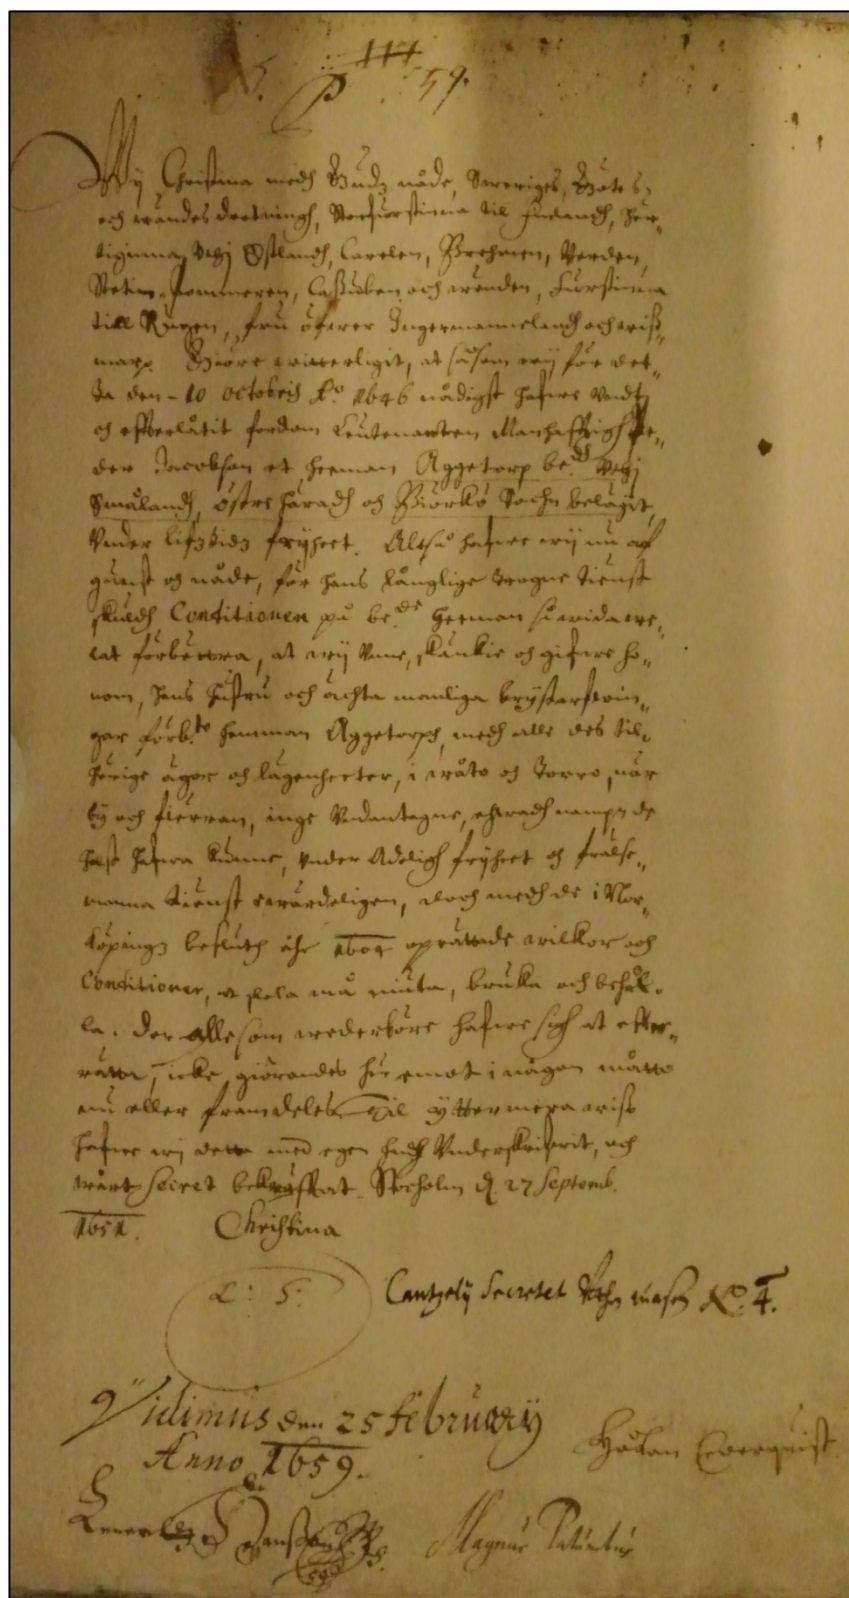 117
P 59.
Wÿ Christina medh Gudz nåde, Sweriges, Götes,
och Wändes drotningh, Storfurstinna til Finlandh, Her„
tiginna, vthj Estlandh, Carelen, Brehmen, Verden,
Stetin Pommeren, Cassuben och Wenden, Furstinna
till Rügen, fru öfwer Ingermannelandh och Wiß„
mar. Giöre witterligit, at såsom wÿ för det„
ta den 10 octobris Ao. 1646 nådigst hafwe vndt
och efterlåtit fordom Leutenanten Manhafftigh Pe„
der Jacobson et heman Aggetorp be:dh vthj
Smålandh, östre häradh och Biörkö Sochn belägit,
vnder lifztidz frÿheet. Altså hafwe wÿ nu af
gunst og nåde, för hans långlige trogne tienst
skuldh Conditionen på be:de heman så wida we„
lat förbättra, at wÿ vnne, skänkie och gifwe ho„
nom, hans hustru och ächta manliga brÿstarfwin„
gar förb:te hemman Aggetorph, medh alle des til„
hörige ägor och lägenheeter, i wåto och torro, när
bÿ och fierran, inge vndantagne, ehwadh nampn de
helst hafwa kunne, vnder Adeligh frÿheet och frälse„
manna tienst ewärdeligen, doch medh de i Nor„
köpingz besluth åhr 1604 oprättade wilkor och
Conditioner, at skola må niuta, bruka och behål„
la. Der alle som wederböre hafwe sigh at effter„
rätta, icke giörandes här emot i någon måtto
nu eller framdeles. Til ÿttermera wiss
hafwe wÿ dette med egen handh vnderskrifwit, och
wårt Secret bekräfftat. Stocholm d. 27 Septemb.
1651. Christina
L: S: Cantzelÿ Secretet No. 4.
Vidimus den 25 februarÿ
Anno 1659. Håkan
Magnus